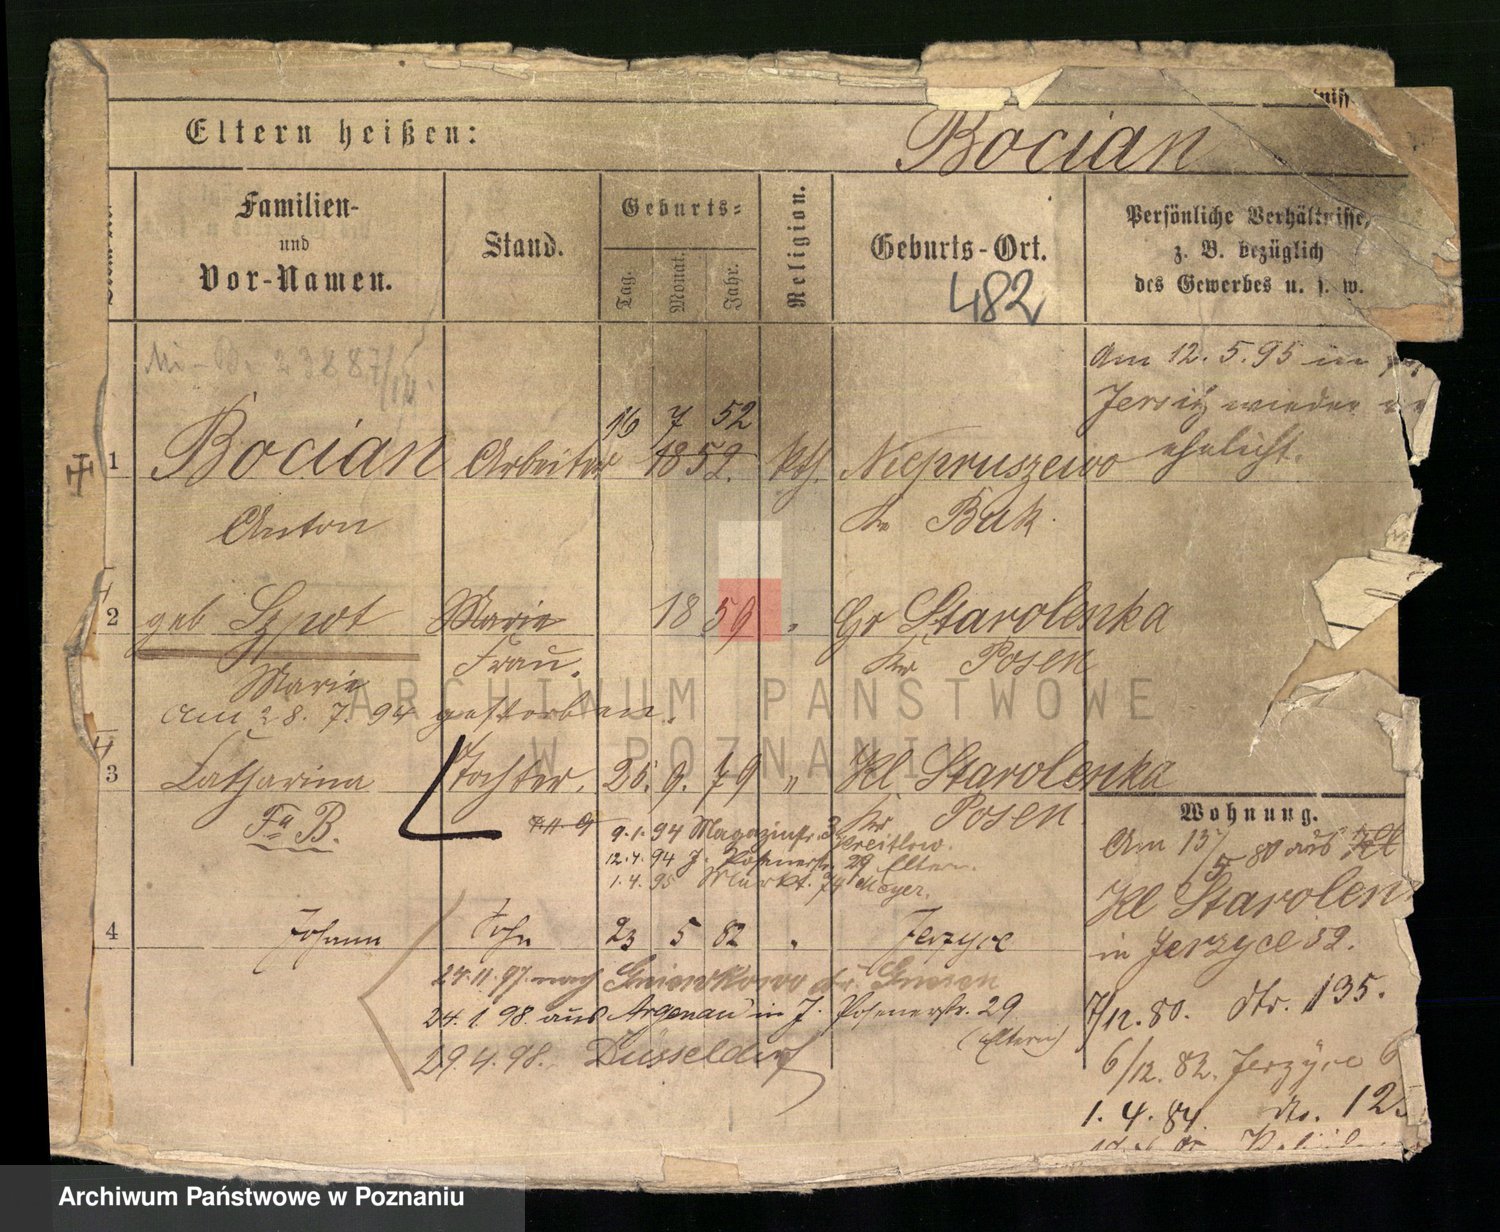 Eltern heißen:
Bocian
Familien-
und
Vor-Namen.
Stand.
Geburts-
Tag.
Monat.
Jahr.
Religion.
Geburts-Ort.
482
Persönliche Verhältnisse,
z. B. bezüglich
des Gewerbes u. s. w.
Am 12. 5. 95 in
Jersitz wieder
ehelicht.
16 7 52
1 Bocian Arbeiter 1852. kth. Niepruszewo
Anton Kr Buk.
2 geb Szpot Marie 18 59 " Gr Starolenka
Marie Frau. Kr Posen
am 28. 7. 94 gestorben.
3 Catharina Tochter. 25. 9. 79 " Kl. Starolenka
Fa B. Kr Posen
9. 1. 94 Magazinstr. 3
12. 4. 94 J. Posenerstr. 29 Eltern.
1. 4. 95 Markt. 74 Meyer.
4 Johann Sohn 23 5 82 " Jerzyce
24. 11. 97. nach Gniewkowo Kr. Gnesen
24. 1. 98. aus Argenau in J. Posenerstr. 29
(Eltern)
29. 4. 98. Düsseldorf
Wohnung.
Am 15/5 80 aus Kl
Kl Starolen
in Jerzyce 32.
7/12. 80. dto. 135.
6/12. 82. Jerzyce 6
1. 4. 84. do. 12
ARCHIWUM PAŃSTWOWE
W POZNANIU
Archiwum Państwowe w Poznaniu